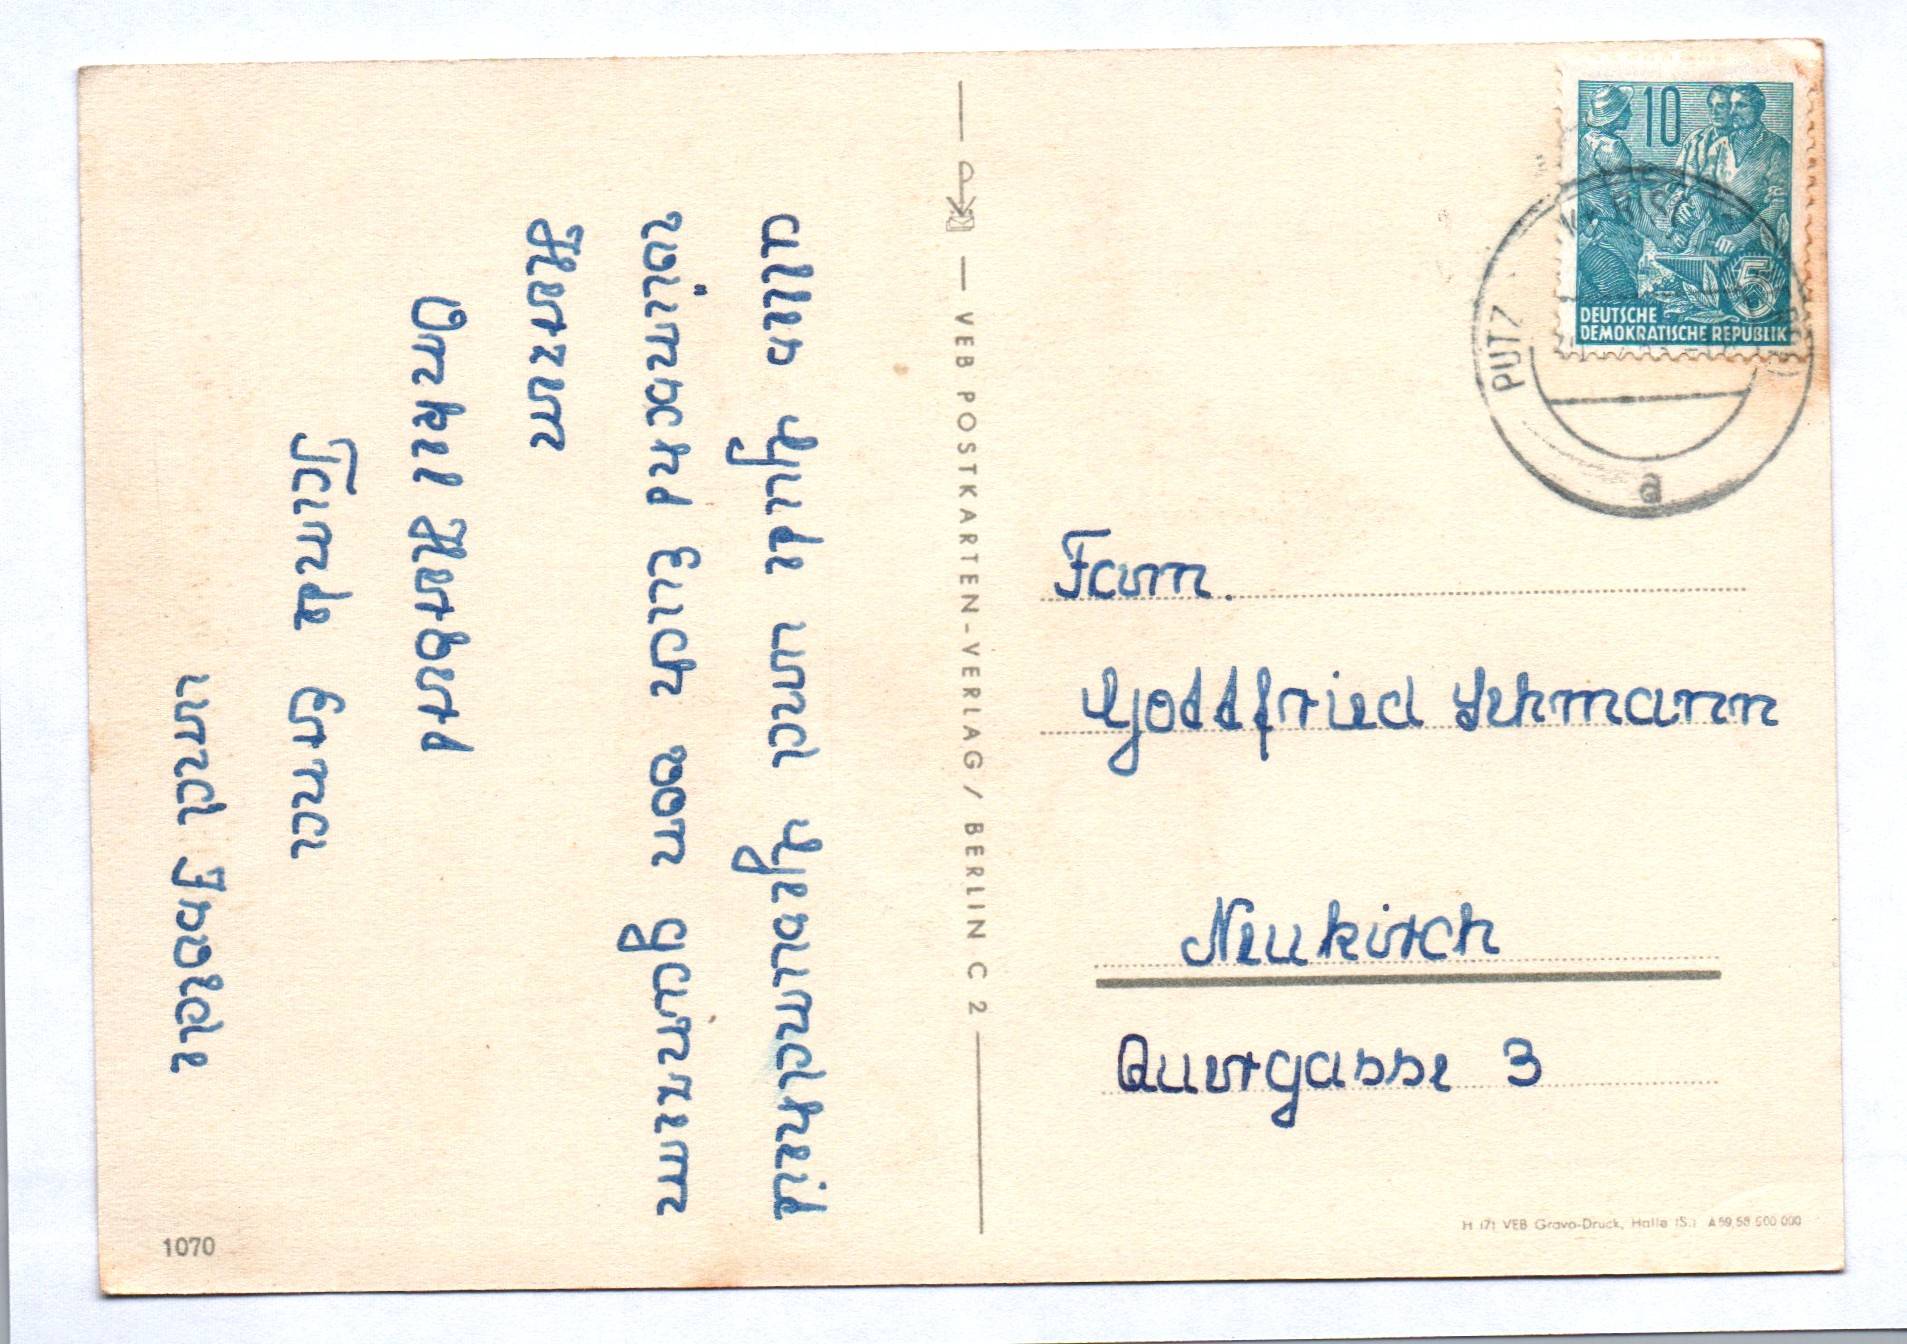 alles Gute und Gesundheit
wünscht Euch von ganzem
Herzen
Onkel Herbert
Tante Erna
und Isolde
VEB POSTKARTEN-VERLAG / BERLIN C 2
10
5
DEUTSCHE
DEMOKRATISCHE REPUBLIK
PUTZ
a
Fam.
Gottfried Lehmann
Neukirch
Quergasse 3
1070
H (7) VEB Gravo-Druck, Halle (S.) A 59/58 500 000